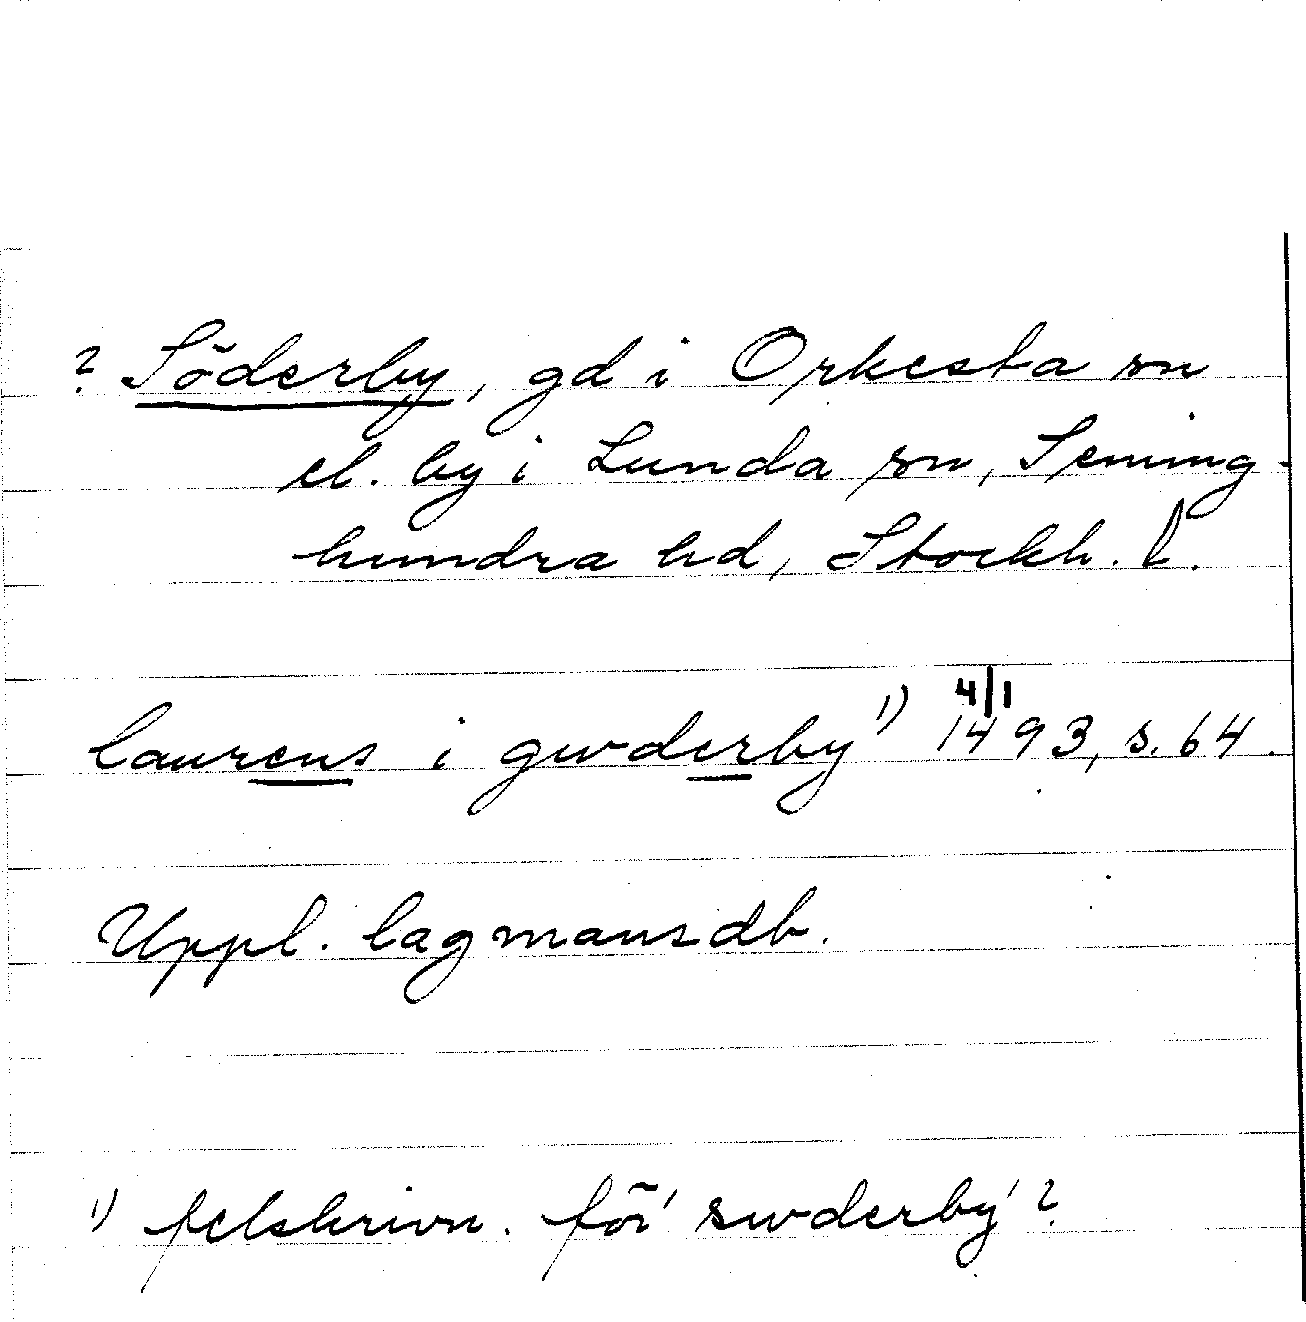 ? Söderby, gd i Orkesta sn
el. by i Lunda sn, Seming-
hundra hd, Stockh. l.
laurens i gwderby 1) 4/1 1493, s. 64.
Uppl. lagmansdb.
1) felskrivn. för 'swderby'?